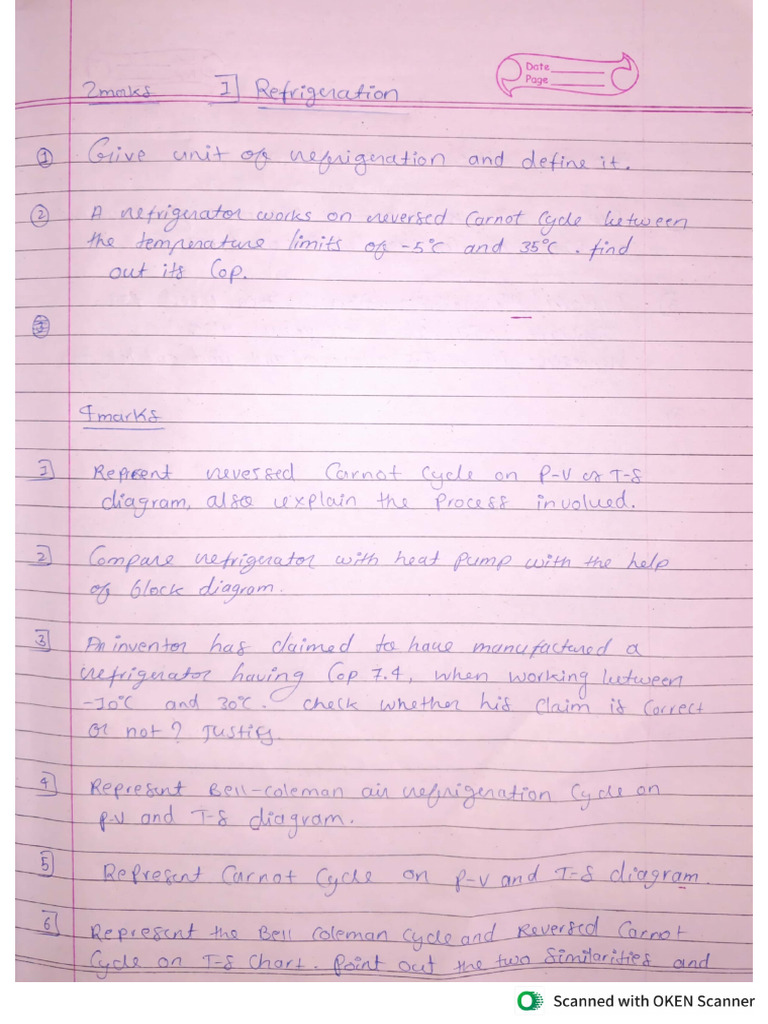 Date
Page
2marks I Refrigeration
① Give unit of refrigeration and define it.
② A refrigerator works on reversed Carnot Cycle between
the temperature limits of -5°C and 35°C. find
out its Cop.
4marks
1 Represent reversed Carnot Cycle on P-V or T-S
diagram, also explain the Process involved.
2 Compare refrigerator with heat pump with the help
of block diagram.
3 An inventor has claimed to have manufactured a
refrigerator having Cop 7.4, when working between
-10°C and 30°C. check whether his claim is correct
or not? Justify.
4 Represent Bell-coleman air refrigeration Cycle on
P-V and T-S diagram.
5 Represent Carnot Cycle on P-V and T-S diagram.
6 Represent the Bell Coleman Cycle and Reversed Carnot
Cycle on T-S Chart. Point out the two Similarities and
Scanned with OKEN Scanner